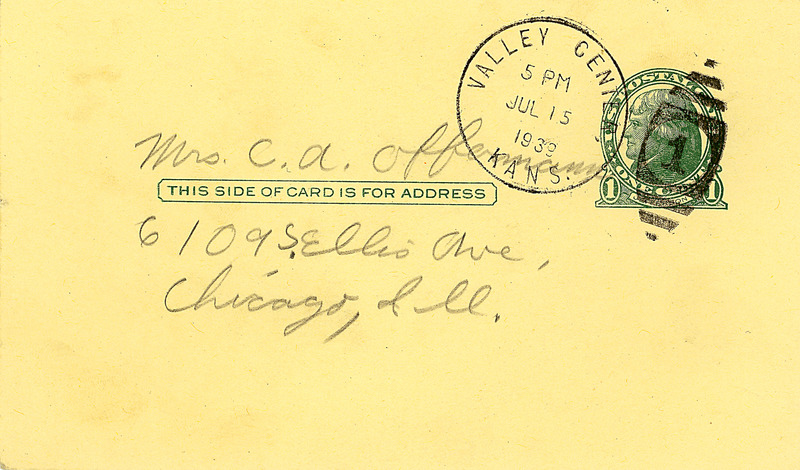 VALLEY CENTER
5 PM
JUL 15
1939
KANS.
U.S. POSTAL CARD
1 ONE CENT 1
1
Mrs. C. A. Offermann
THIS SIDE OF CARD IS FOR ADDRESS
6109 S. Ellis Ave,
Chicago, Ill.